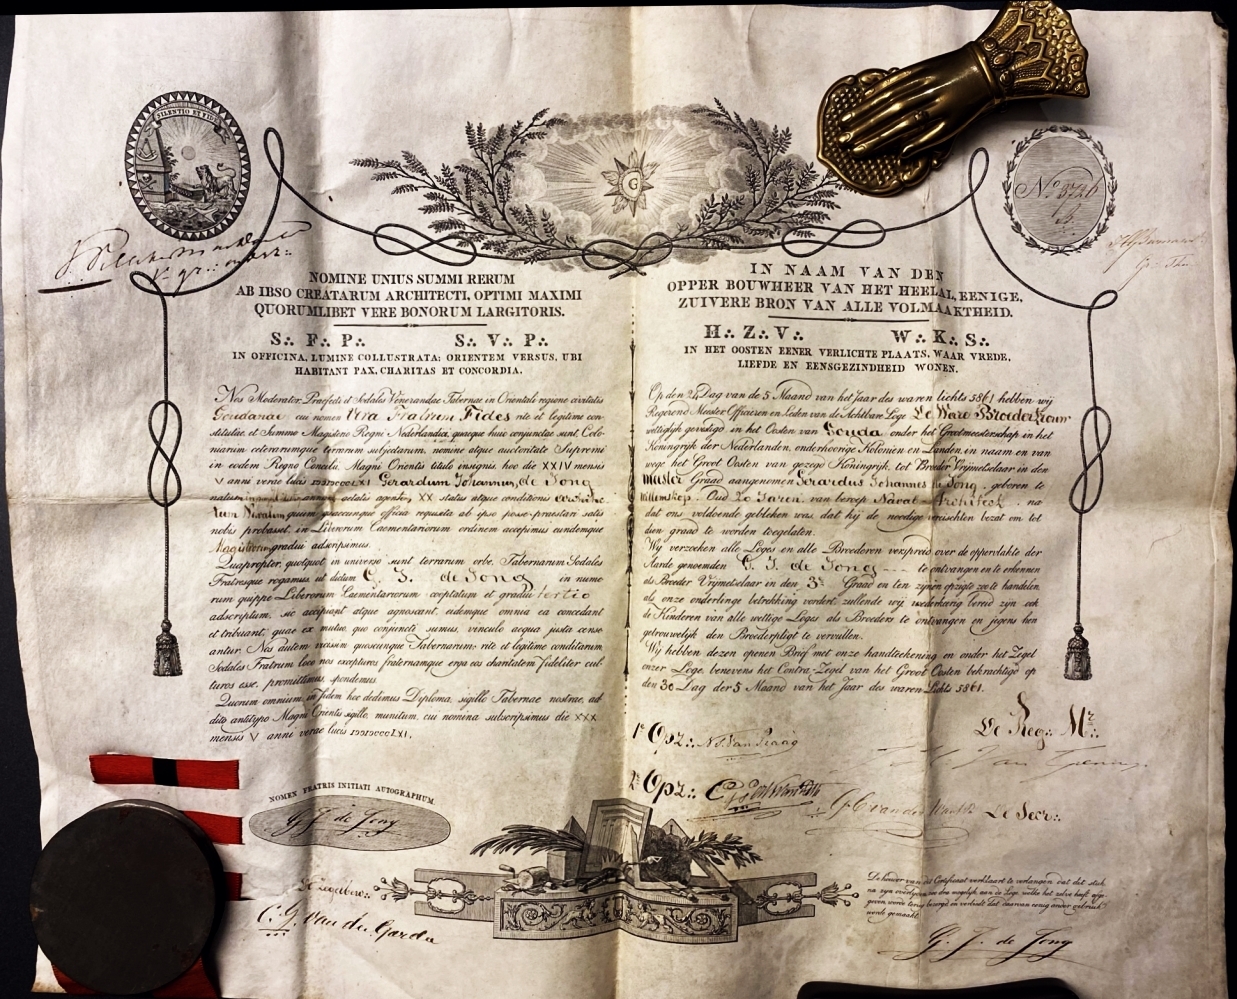 SILENTIO ET FIDE
No 3746
NOMINE UNIUS SUMMI RERUM
AB IBSO CREATARUM ARCHITECTI, OPTIMI MAXIMI
QUORUMLIBET VERE BONORUM LARGITORIS.
S∴ F∴ P∴ S∴ V∴ P∴
IN OFFICINA, LUMINE COLLUSTRATA; ORIENTEM VERSUS, UBI
HABITANT PAX, CHARITAS ET CONCORDIA.
Nos Moderator, Praefecti et Sodales Venerandae Tabernae in Orientali regione civitatis
Goudanae cui nomen Vera Fratrum Fides rite et legitime con-
stitutae, et Summo Magisterio Regni Nederlandici, quaeque huic conjunctae sunt, Colo-
niarum ceterarumque terrarum subjectarum, nomine atque auctoritate Supremi
in eodem Regno Concilii, Magni Orientis titulo insignis, hoc die XXIV mensis
V anni verae lucis Gerardum Johannem de Jong
aetatis agentem XX status atque conditionis
quem quaecunque officia requisita ab ipso posse praestari satis
nobis probasset, in Liberorum Caementariorum ordinem accepimus eundemque
Magistrum gradui adscripsimus.
Quapropter, quotquot in universo sunt terrarum orbe, Tabernarum Sodales
Fratresque rogamus ut dictum G. J. de Jong in nume
rum quippe Liberorum Caementariorum cooptatum et gradui tertio
adscriptum, sic accipiant atque agnoscant, eidemque omnia ea concedant
et tribuant, quae ex mutuo, quo conjuncti sumus, vinculo aequa justa cense
antur. Nos autem vicissim quoscunque Tabernarum rite et legitime conditarum
Sodales Fratrum loco nos excepturos fraternamque erga eos charitatem fideliter cul
turos esse, promittimus, spondemus.
Quorum omnium in fidem hoc dedimus Diploma, sigillo Tabernae nostrae, ad
dito antitypo Magni Orientis sigillo, munitum, cui nomina subscripsimus die XXX
mensis V anni verae lucis
NOMEN FRATRIS INITIATI AUTOGRAPHUM.
G. J. de Jong
C. G. van der Garde
IN NAAM VAN DEN
OPPER BOUWHEER VAN HET HEELAL, EENIGE,
ZUIVERE BRON VAN ALLE VOLMAAKTHEID.
H∴ Z∴ V∴ W∴ K∴ S∴
IN HET OOSTEN EENER VERLICHTE PLAATS, WAAR VREDE,
LIEFDE EN EENSGEZINDHEID WONEN.
Op den 24 Dag van de 5 Maand van het jaar des waren lichts 5861 hebben wij
Regerend Meester Officieren en Leden van de Achtbare Loge De Ware Broedertrouw
wettiglijk gevestigd in het Oosten van Gouda onder het Grootmeesterschap in het
Koningrijk der Nederlanden, onderhoorige Koloniën en Landen, in naam en van
wege het Groot Oosten van gezegd Koningrijk, tot Broeder Vrijmetselaar in den
Meester Graad aangenomen Gerardus Johannes de Jong, geboren te
Willemskop. Oud 20 Jaren, van beroep Naval-Architect na
dat ons voldoende gebleken was, dat hij de noodige vereischten bezat om tot
dien graad te worden toegelaten.
Wij verzoeken alle Loges en alle Broederen verspreid over de oppervlakte der
Aarde genoemden G. J. de Jong te ontvangen en te erkennen
als Broeder Vrijmetselaar in den 3e Graad en ten zijnen opzigte zoo te handelen
als onze onderlinge betrekking vordert, zullende wij wederkeerig bereid zijn ook
de Kinderen van alle wettige Loges als Broeders te ontvangen en jegens hen
getrouwelijk den Broederpligt te vervullen.
Wij hebben dezen openen Brief met onze handteekening en onder het Zegel
onzer Loge, benevens het Contra-Zegel van het Groot Oosten bekrachtigd op
den 30 Dag der 5 Maand van het Jaar des waren Lichts 5861.
De Reg∴ Mr∴
1e Opz∴ N. J. van Praag
2e Opz∴
De Secr∴
De houder van dit Certificaat verklaart te verlangen dat dit stuk
na zijn overlijden zoo dra mogelijk aan de Loge welke het zelve heeft afge
geven worde terug bezorgd en verbiedt dat daarvan eenig ander gebruik
worde gemaakt.
G. J. de Jong